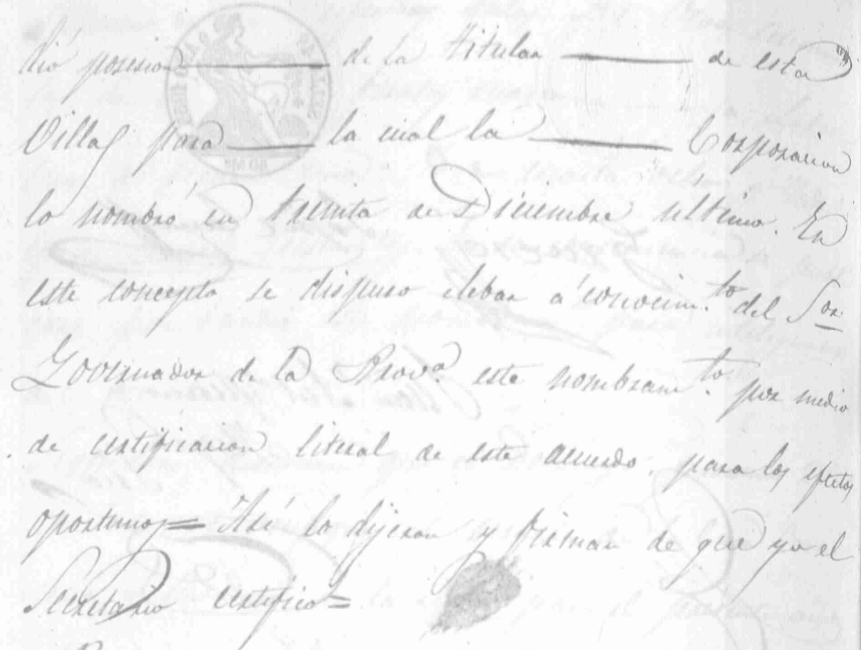 dió posesion ——— de la titular ——— de esta
Villa, para ——— la cual la ——— Corporacion
lo nombró en treinta de Diciembre ultimo. En
este concepto se dispuso elebar á conocim.to del Sor.
Governador de la Prov.a este nombram.to por medio
de certificacion literal de este acuerdo, para los efectos
oportunos= Asi lo dijeron y firman de que yo el
Secretario certifico=